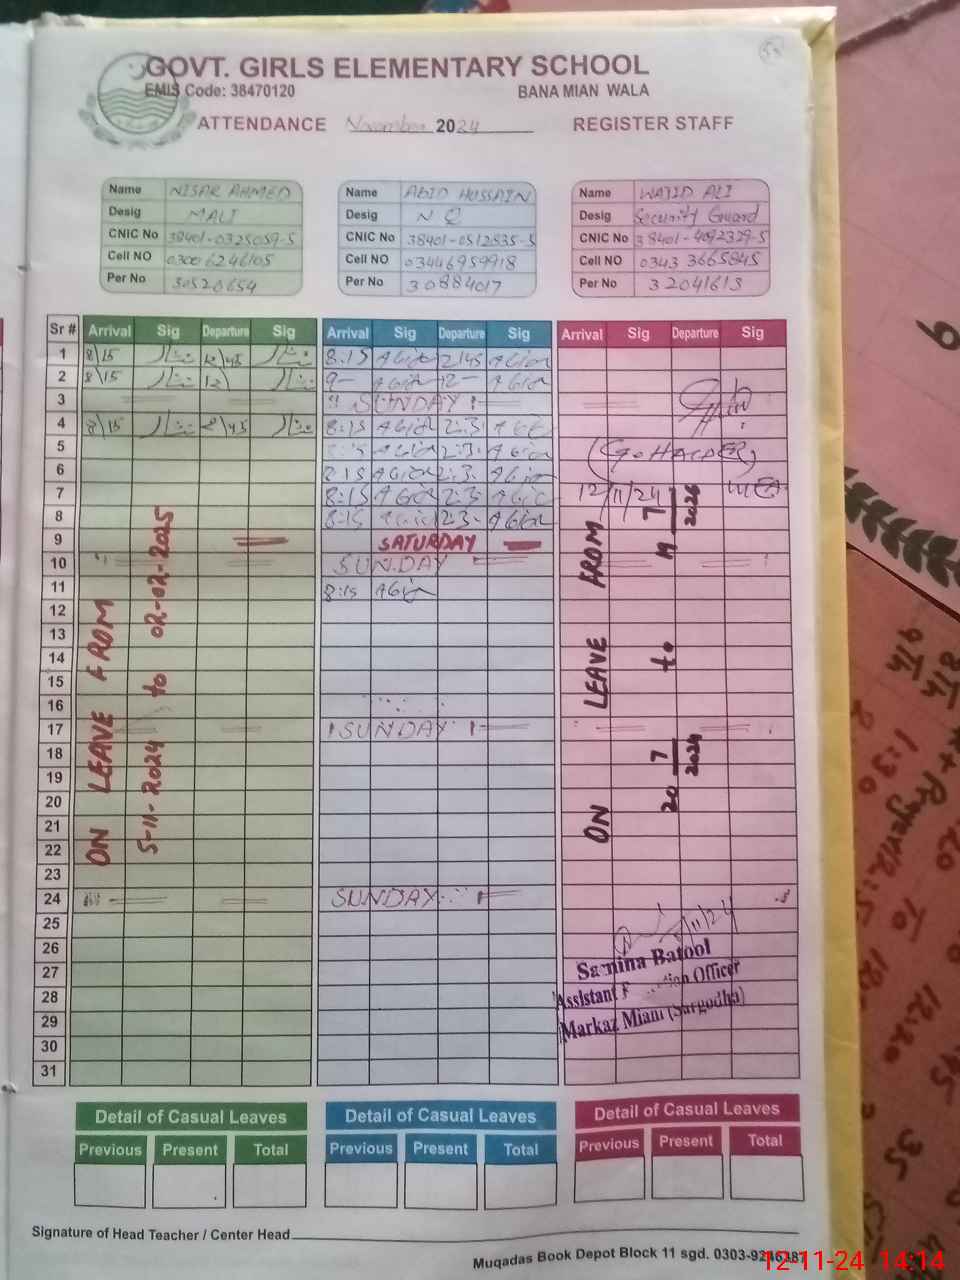 GOVT. GIRLS ELEMENTARY SCHOOL
EMIS Code: 38470120 BANA MIAN WALA
ATTENDANCE November 2024 REGISTER STAFF
Name NISAR AHMED
Desig MALI
CNIC No 38401-0325059-5
Cell NO 03006246105
Per No 30520654
Name ABID HUSSAIN
Desig N Q
CNIC No 38401-0512835-5
Cell NO 03446959918
Per No 30884017
Name WAJID ALI
Desig Security Guard
CNIC No 38401-4092329-5
Cell NO 0343 3665845
Per No 32041613
Sr # Arrival Sig Departure Sig Arrival Sig Departure Sig Arrival Sig Departure Sig
1 8\15 نثار 12\45 نثار 8:15 2:45
2 8\15 نثار 12\ نثار 9- 12-
3 SUNDAY
4 8\15 نثار 2\45 نثار 8:15 2:3
5 2:3
6 8:15 2:3
7 8:15 2:3 12/11/24
8 8:15 2:3
9 SATURDAY
10 SUNDAY
11 8:15
12
13
14
15
16
17 SUNDAY
18
19
20
21
22
23
24 SUNDAY
25
26
27
28
29
30
31
ON LEAVE FROM
5-11-2024 to 02-02-2025
ON LEAVE FROM
20 7 2024 to 19 7 2026
Samina Batool
Assistant Officer
Markaz Miani (Sargodha)
Detail of Casual Leaves Detail of Casual Leaves Detail of Casual Leaves
Previous Present Total Previous Present Total Previous Present Total
Signature of Head Teacher / Center Head
Muqadas Book Depot Block 11 sgd.
12-11-24 14:14